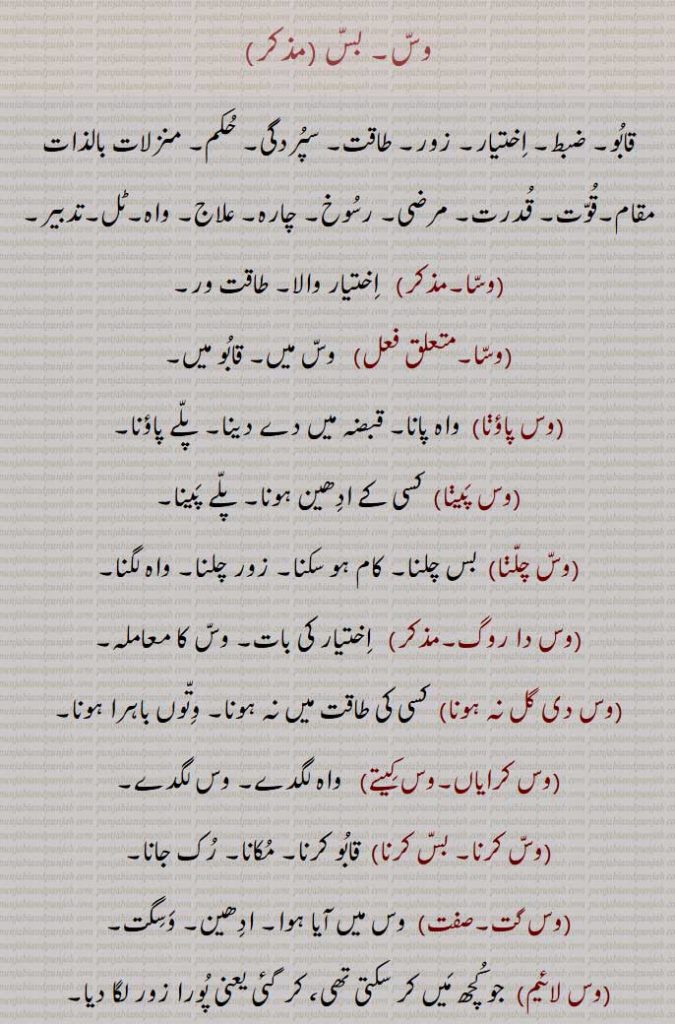 وسّ۔ بسّ (مذکر)
قابُو۔ ضبط۔ اِختیار۔ زور۔ طاقت۔ سپُردگی۔ حُکم۔ منزلات بالذات
مقام۔ قُوّت۔ قُدرت۔ مرضی۔ رسُوخ۔ چارہ۔ علاج۔ واہ۔ ٹل۔ تدبیر۔
(وسّا۔مذکر) اِختیار والا۔ طاقت ور۔
(وسّا۔متعلق فعل) وسّ میں۔ قابُو میں۔
(وس پاؤݨا) واہ پانا۔ قبضہ میں دے دینا۔ پلّے پاؤنا۔
(وس پَیݨا) کسی کے ادِھین ہونا۔ پلّے پَینا۔
(وسّ چلّݨا) بس چلنا۔ کام ہو سکنا۔ زور چلنا۔ واہ لگنا۔
(وس دا روگ۔مذکر) اِختیار کی بات۔ وسّ کا معاملہ۔
(وس دی گل نہ ہونا) کسی کی طاقت میں نہ ہونا۔ وِتّوں باہرا ہونا۔
(وس کرایاں۔وس کِیتے) واہ لگدے۔ وس لگدے۔
(وسّ کرنا۔ بسّ کرنا) قابُو کرنا۔ مُکانا۔ رُک جانا۔
(وس گت۔صفت) وس میں آیا ہوا۔ ادِھین۔ وَسِگت۔
(وس لائیم) جو کُچھ مَیں کر سکتی تھی، کر گئی یعنی پُورا زور لگا دیا۔